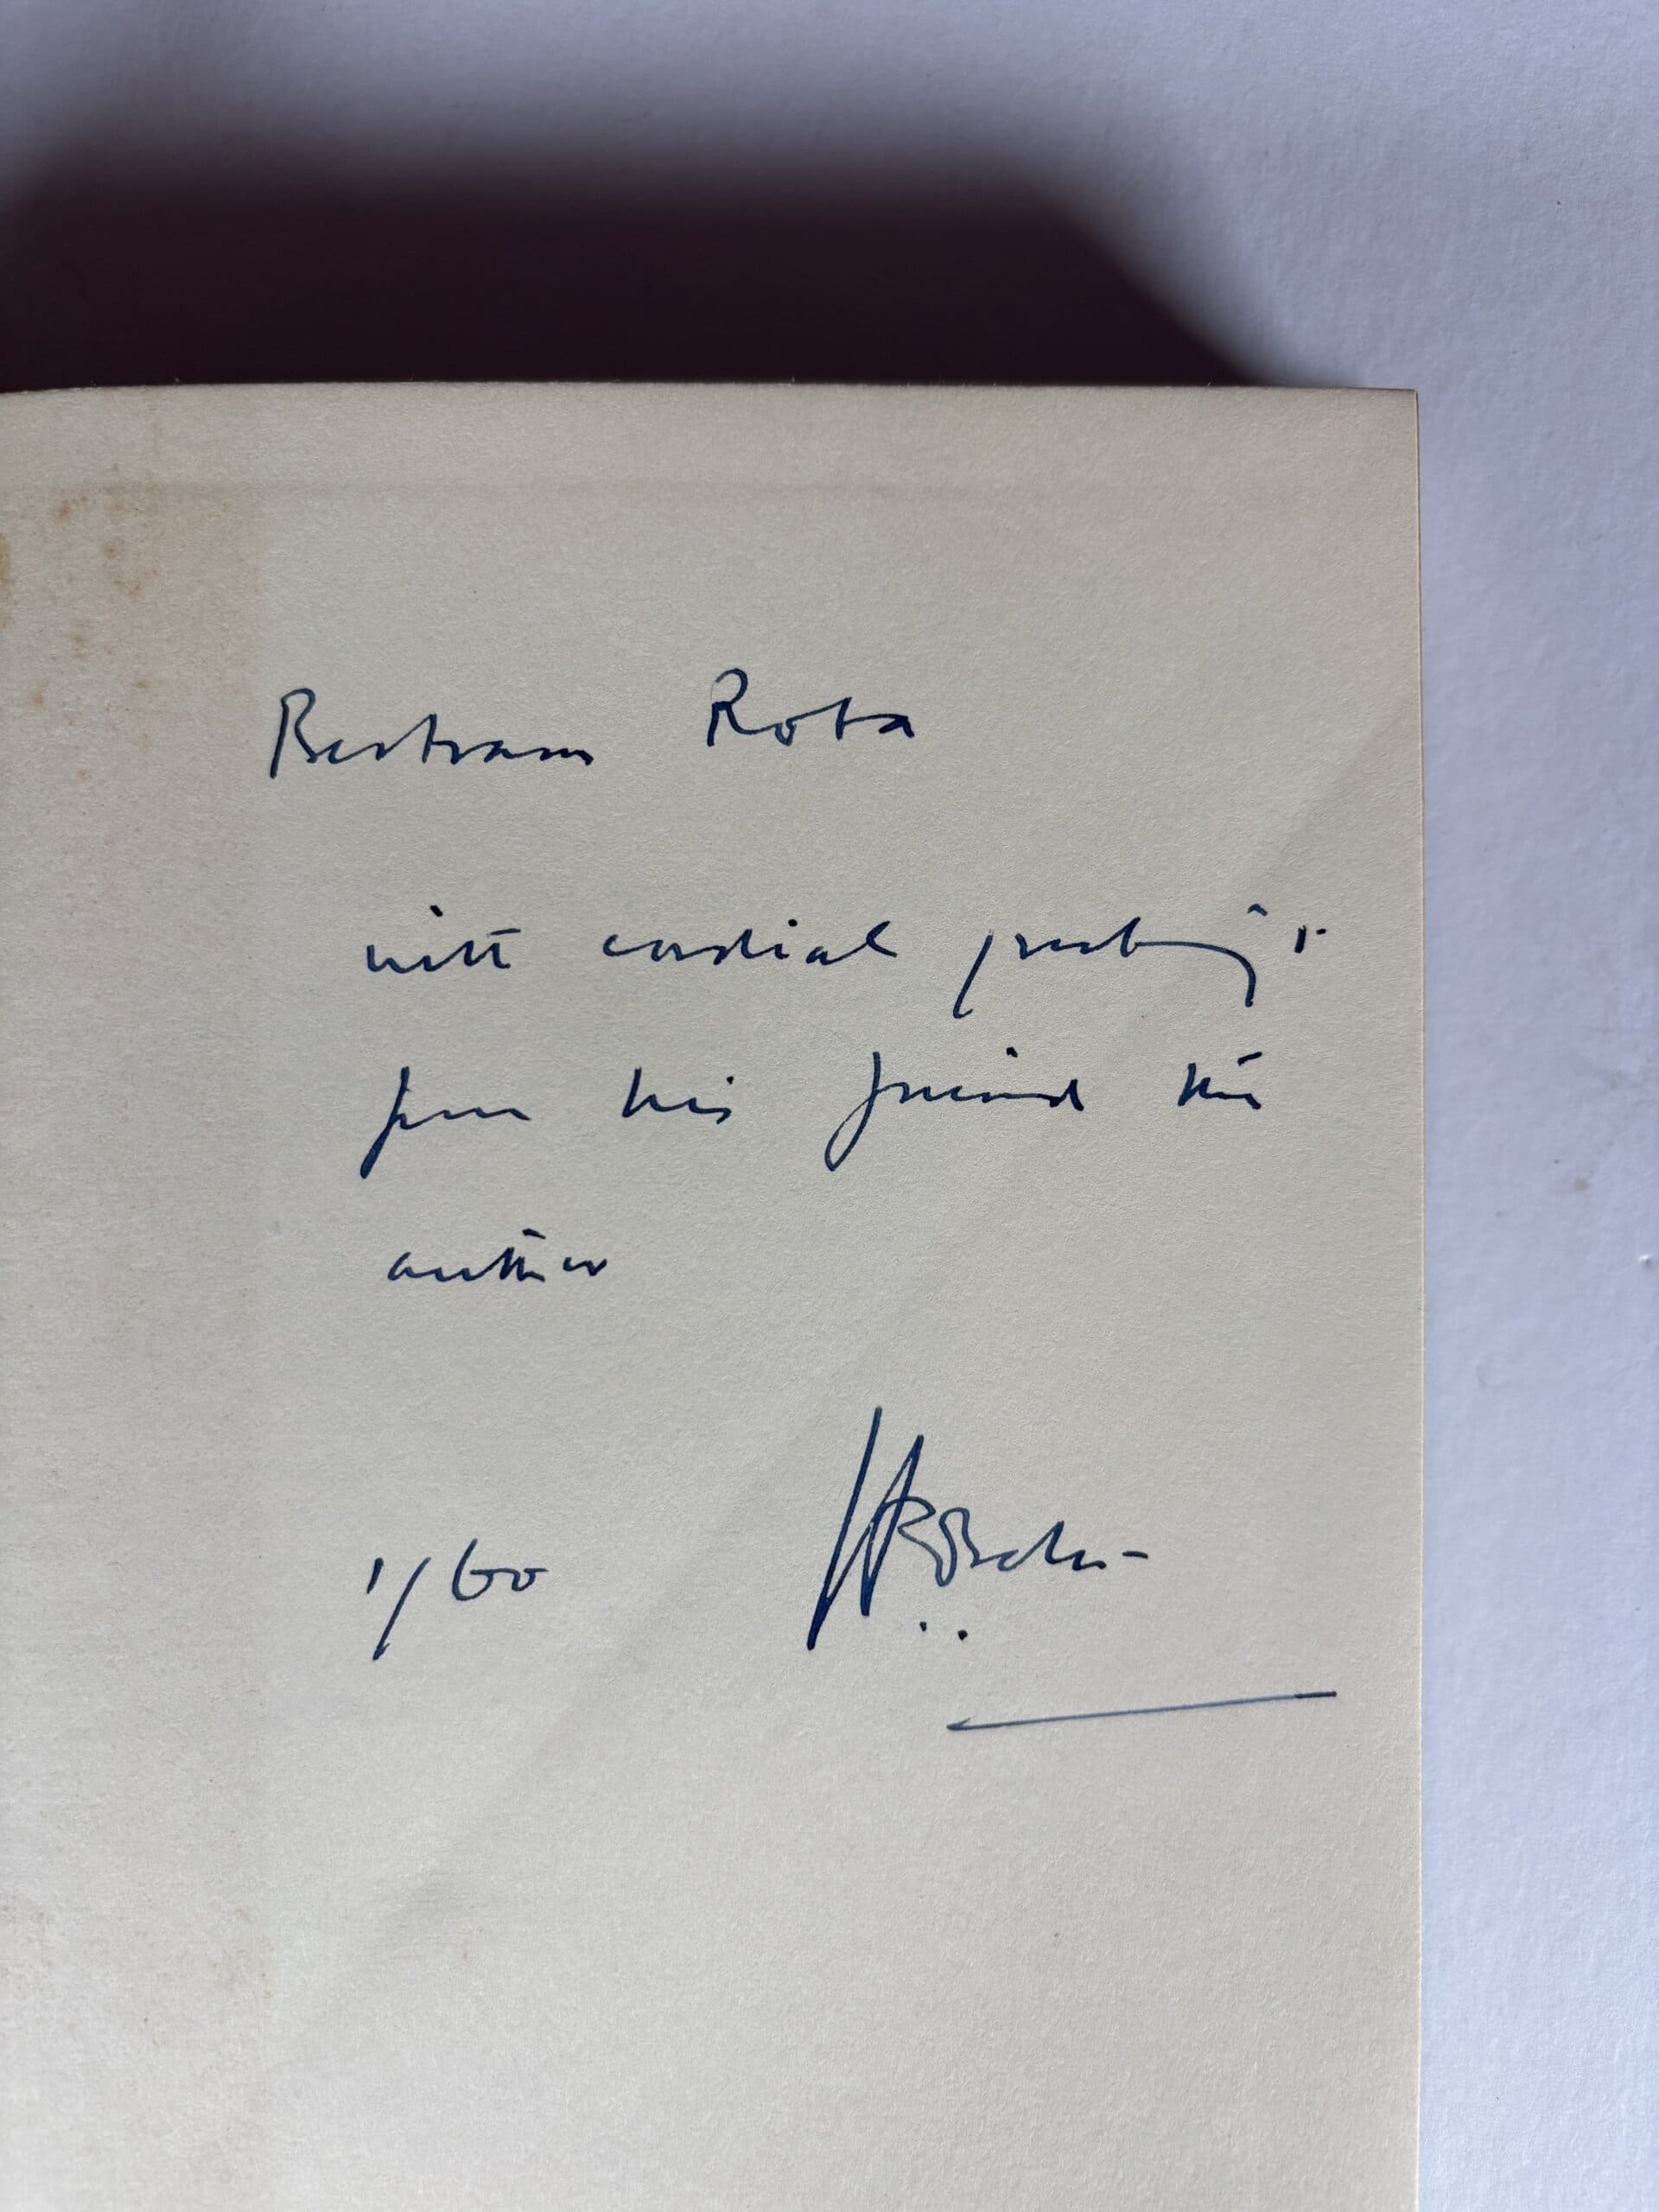 Bertram Rota
with cordial greetings
from his friend the
author
1/60